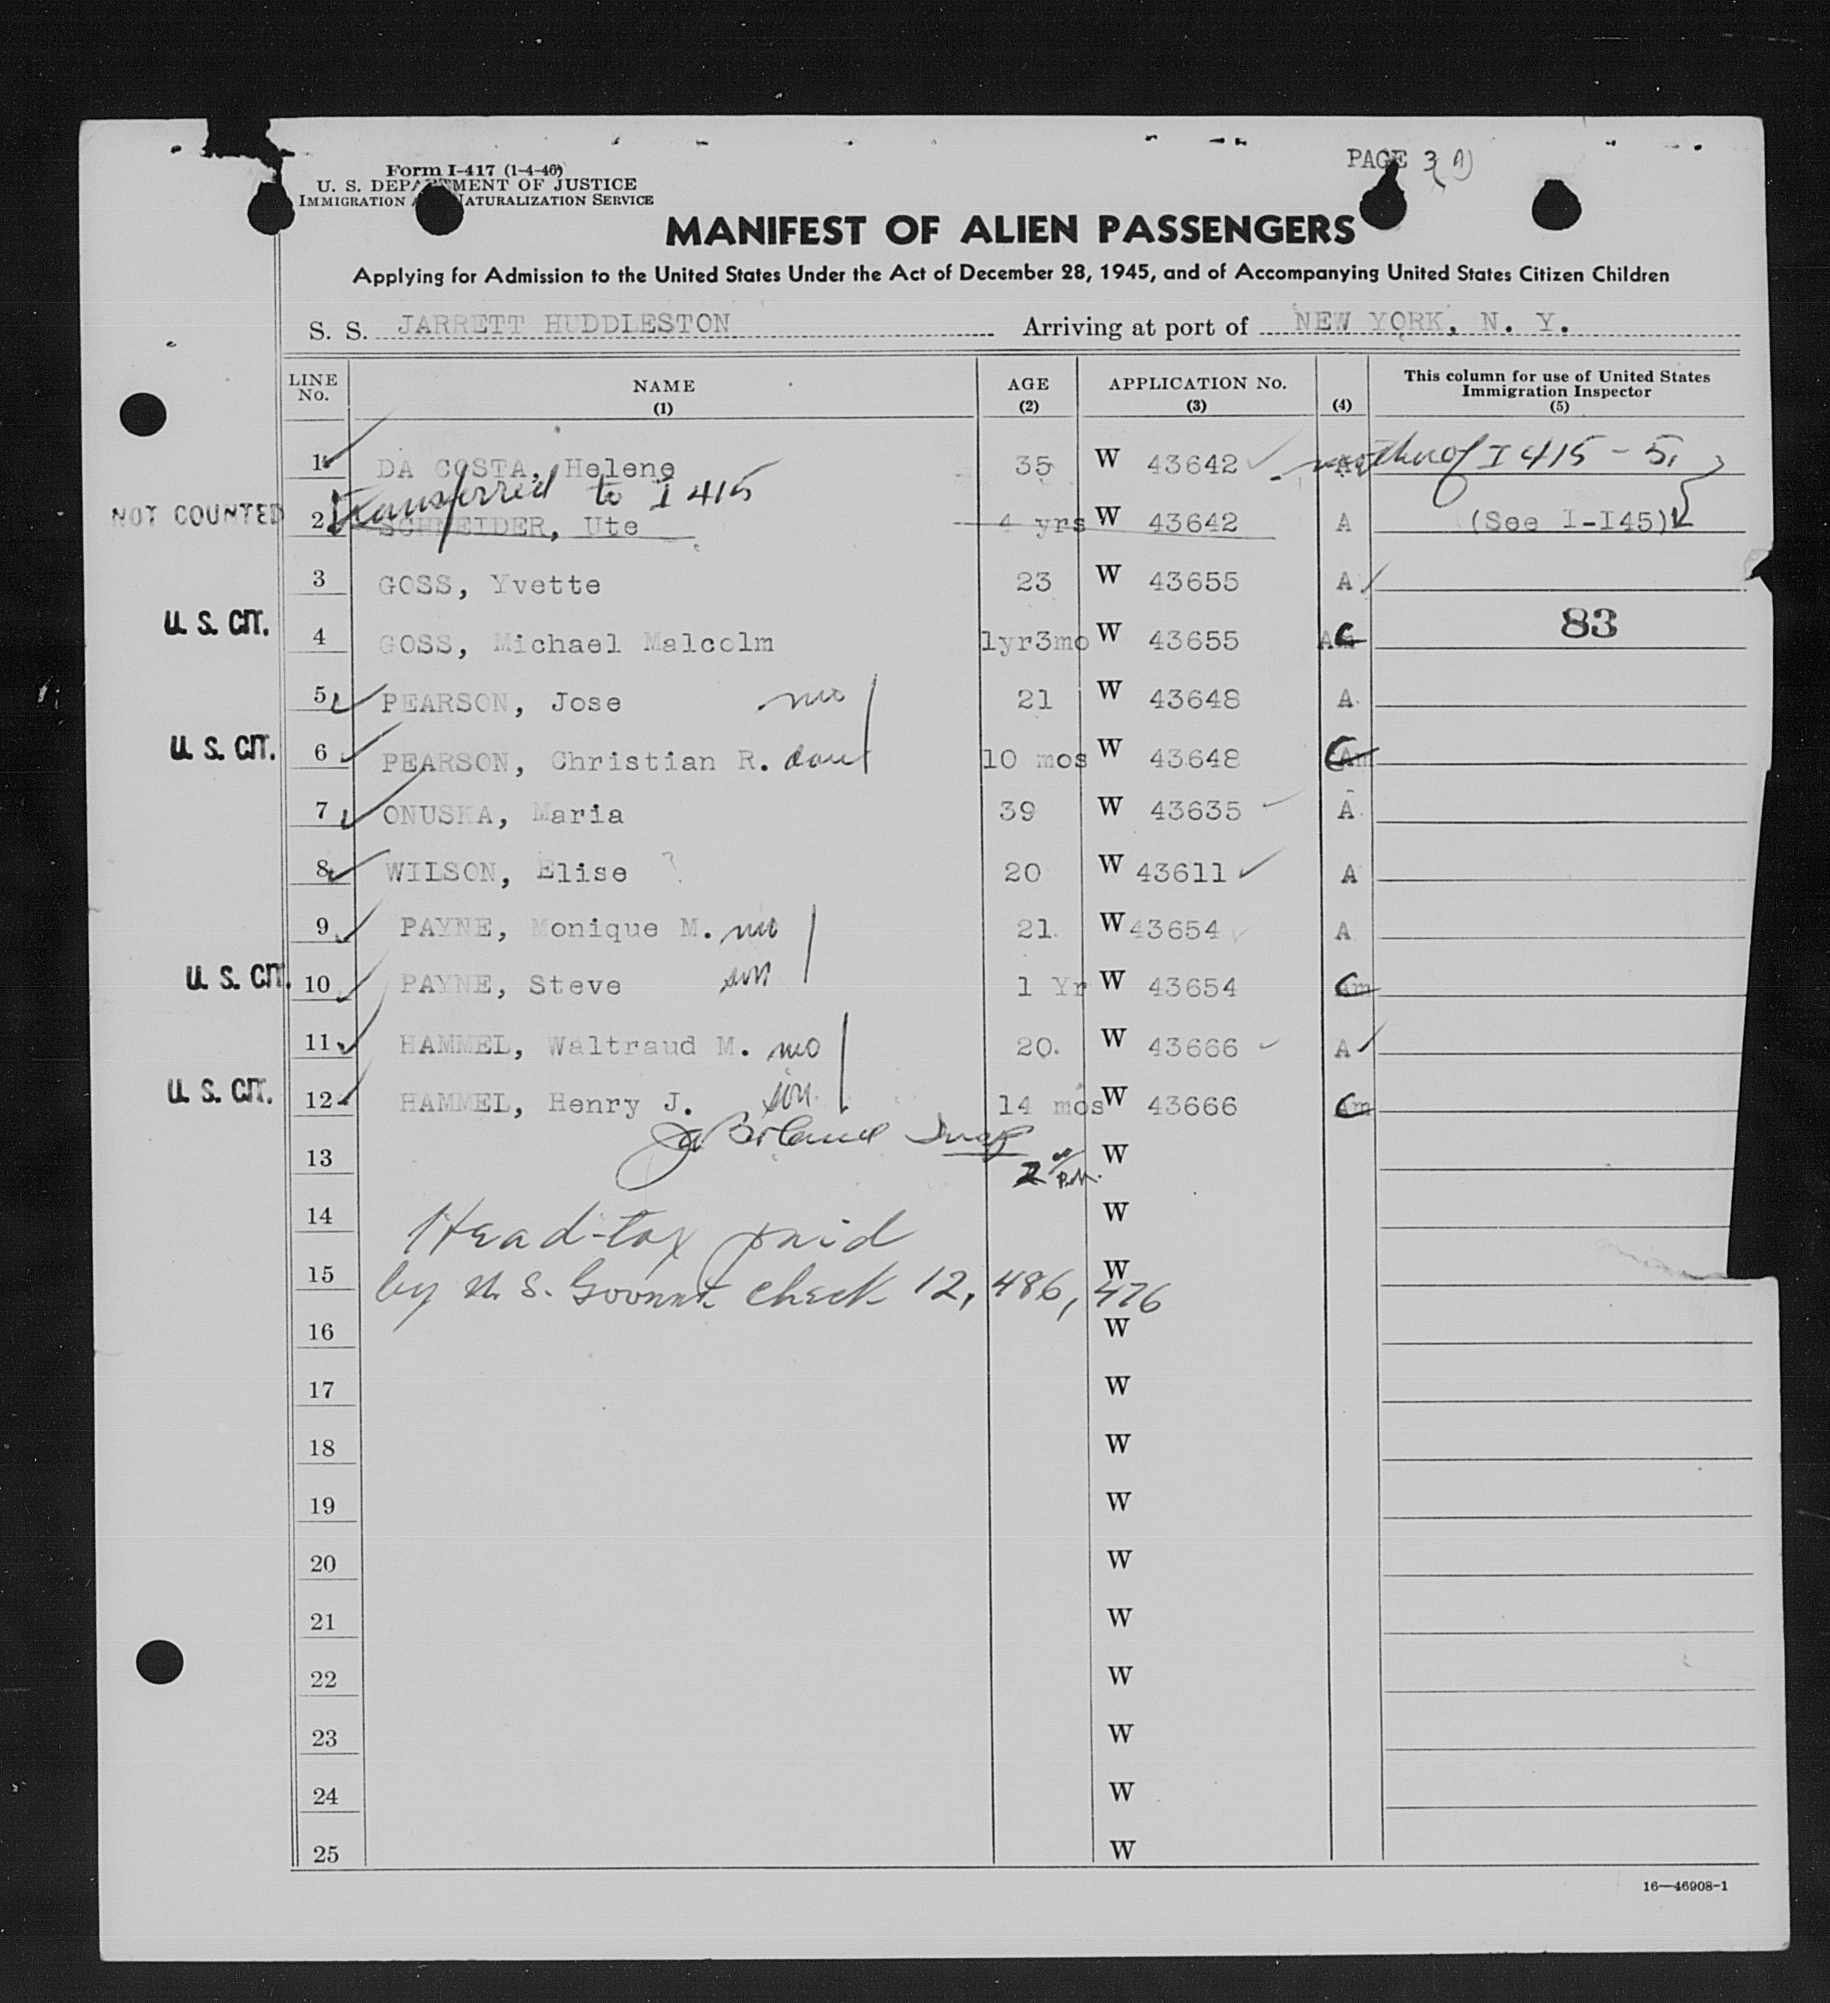 PAGE 3
Form I-417 (1-4-46)
U. S. DEPARTMENT OF JUSTICE
IMMIGRATION NATURALIZATION SERVICE
MANIFEST OF ALIEN PASSENGERS
Applying for Admission to the United States Under the Act of December 28, 1945, and of Accompanying United States Citizen Children
S. S. JARRETT HUDDLESTON Arriving at port of NEW YORK, N. Y.
LINE No. NAME (1) AGE (2) APPLICATION No. (3) (4) This column for use of United States Immigration Inspector (5)
1 DA COSTA, Helene 35 W 43642 A mother of I 415 - 5,
Transferred to I 415
NOT COUNTED 2 SCHNEIDER, Ute 4 yrs W 43642 A (See I-I45)
3 GOSS, Yvette 23 W 43655 A
U. S. CIT. 4 GOSS, Michael Malcolm 1yr3mo W 43655 C 83
5 PEARSON, Jose mo 21 W 43648 A
U. S. CIT. 6 PEARSON, Christian R. dau 10 mos W 43648 C Am
7 ONUSKA, Maria 39 W 43635 A
8 WILSON, Elise ? 20 W 43611 A
9 PAYNE, Monique M. mo 21 W 43654 A
U. S. CIT. 10 PAYNE, Steve son 1 Yr W 43654 C Am
11 HAMMEL, Waltraud M. mo 20. W 43666 A
U. S. CIT. 12 HAMMEL, Henry J. son 14 mos W 43666 C Am
Insp
13 2 00 P.M. W
14 Head-tax paid W
15 by U. S. Govmnt check 12,486,476 W
16 W
17 W
18 W
19 W
20 W
21 W
22 W
23 W
24 W
25 W
16—46908-1